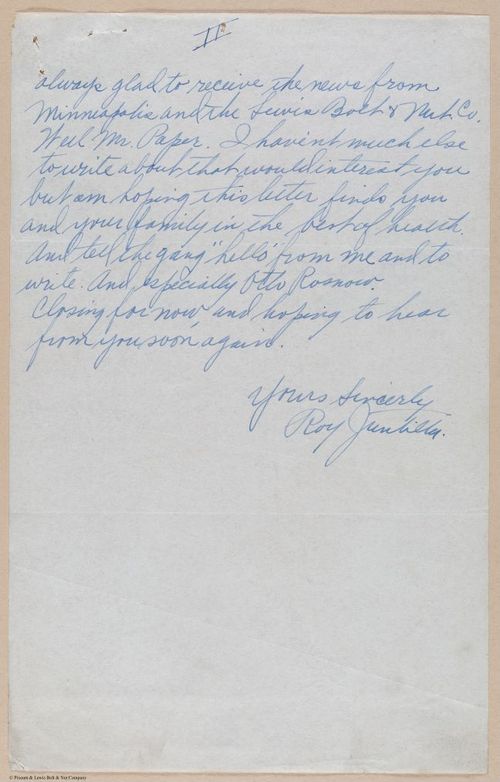 II
always glad to receive the news from
Minneapolis and the Lewis Bolt & Nut. Co.
Well Mr. Paper. I havent much else
to write about that would interest you
but am hoping this letter finds you
and your family in the best of health.
And tell the gang "hello" from me and to
write. And especially Otto Rosnow.
Closing for now, and hoping to hear
from you, soon, again.
Yours Sincerly
Roy Juntilla.
© Presson & Lewis Bolt & Nut Company